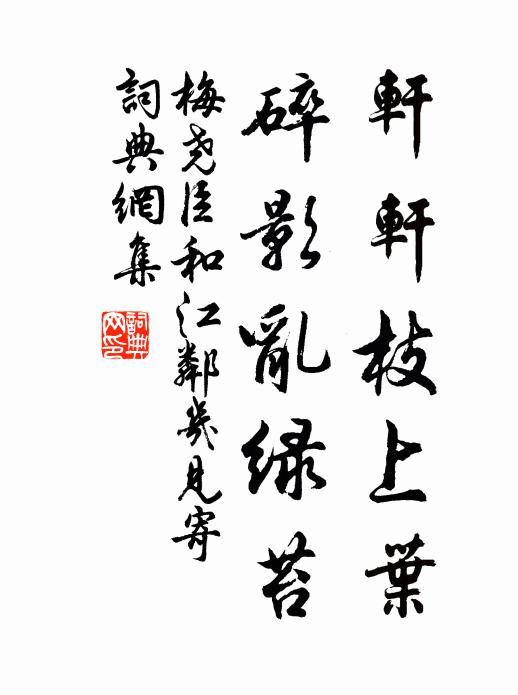 軒軒枝上葉
碎影亂緑苔
梅尧臣和江鄰幾見寄
詞典網集
詞典網印